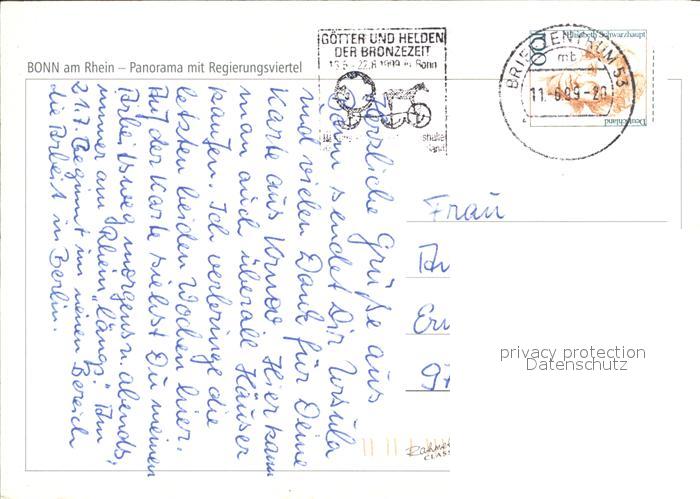 GÖTTER UND HELDEN
DER BRONZEZEIT
13.5.-22.8.1999 in Bonn
BRIEFZENTRUM 53
mb
11.-6.99-20
Elisabeth Schwarzhaupt
100
Deutschland
BONN am Rhein – Panorama mit Regierungsviertel
Herzliche Grüße aus
Bonn sendet Dir Ursula
und vielen Dank für Deine
Karte aus Hier kann
man auch überall Häuser
kaufen. Ich verbringe die
letzten beiden Wochen hier.
Auf der Karte siehst Du meinen
Arbeitsweg morgens u. abends,
immer am Rhein "längs". Am
21.7. Beginnt im neuen Bereich
die Arbeit in Berlin.
Frau
privacy protection
Datenschutz